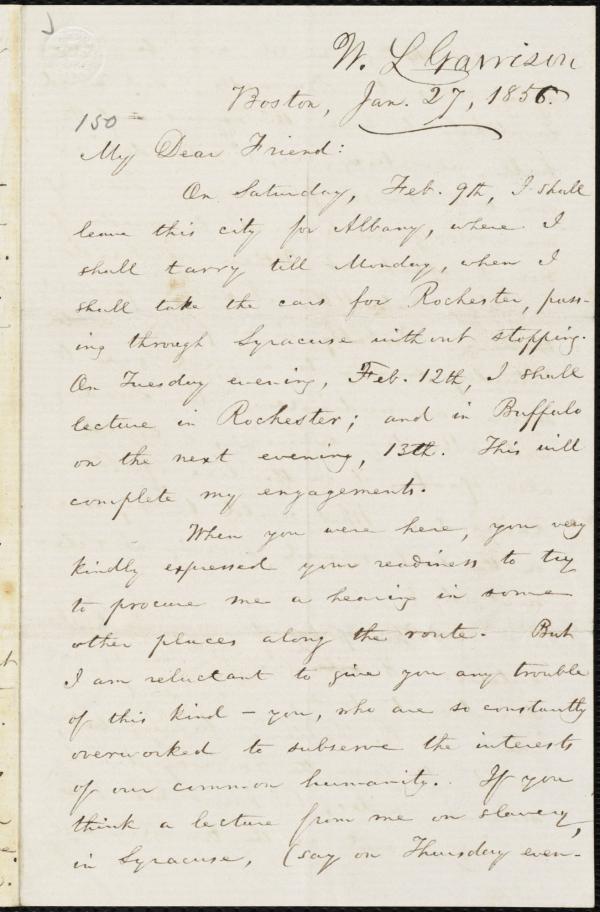 W. L. Garrison
Boston, Jan. 27, 1856.
150
My Dear Friend:
On Saturday, Feb. 9th, I shall
leave this city for Albany, where I
shall tarry till Monday, when I
shall take the cars for Rochester, pass-
ing through Syracuse without stopping.
On Tuesday evening, Feb. 12th, I shall
lecture in Rochester; and in Buffalo
on the next evening, 13th. This will
complete my engagements.
When you were here, you very
kindly expressed your readiness to try
to procure me a hearing in some
other places along the route. But
I am reluctant to give you any trouble
of this kind – you, who are so constantly
overworked to subserve the interests
of our common humanity. If you
think a lecture from me on slavery,
in Syracuse, (say on Thursday even-